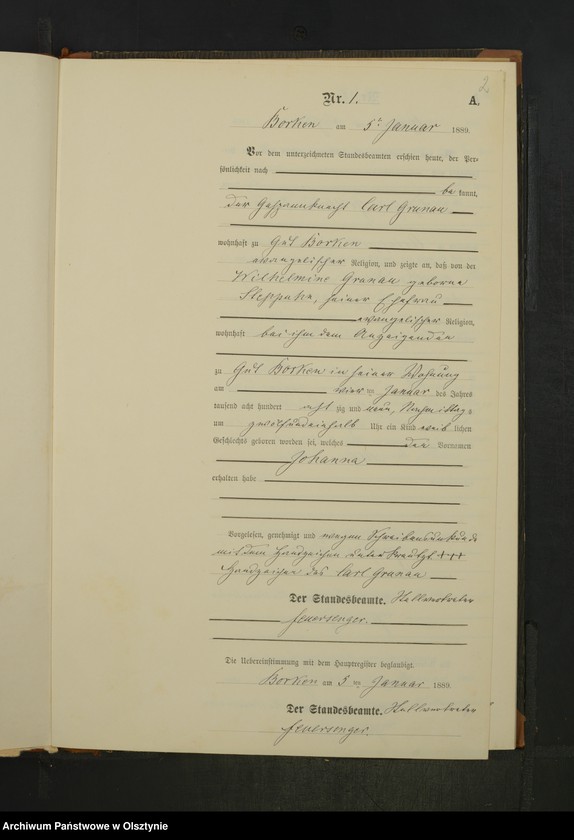 2
Nr. 1.
A.
Borken am 5ten Januar 1889.
Vor dem unterzeichneten Standesbeamten erschien heute, der Per-
sönlichkeit nach
be kannt,
der Gespannknecht Carl Granau
wohnhaft zu Gut Borken
evangelischer Religion, und zeigte an, daß von der
Wilhelmine Granau geborene
seiner Ehefrau
evangelischer Religion,
wohnhaft bei ihm dem Anzeigenden
zu Gut Borken in seiner Wohnung
am vier ten Januar des Jahres
tausend acht hundert acht zig und neun, Nachmittags
um zwölfundeinhalb Uhr ein Kind weib lichen
Geschlechts geboren worden sei, welches den Vornamen
Johanna
erhalten habe
Vorgelesen, genehmigt und wegen Schreibensunkunde
mit dem Handzeichen unterkreuzt +++
Handzeichen des Carl Granau
Der Standesbeamte. Stellvertreter
Feuersenger.
Die Uebereinstimmung mit dem Hauptregister beglaubigt.
Borken am 5 ten Januar 1889.
Der Standesbeamte. Stellvertreter
Feuersenger.
Archiwum Państwowe w Olsztynie